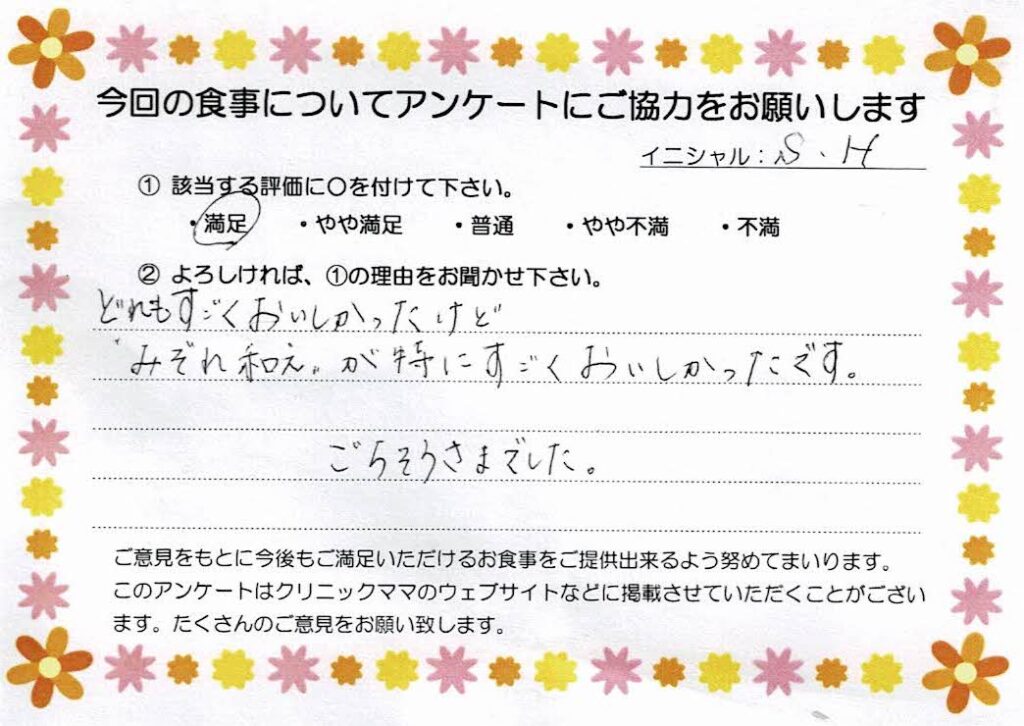 今回の食事についてアンケートにご協力をお願いします
イニシャル：S.H
① 該当する評価に○を付けて下さい。
・満足 ・やや満足 ・普通 ・やや不満 ・不満
② よろしければ、①の理由をお聞かせ下さい。
どれもすごくおいしかったけど
"みぞれ和え"が特にすごくおいしかったです。
ごちそうさまでした。
ご意見をもとに今後もご満足いただけるお食事をご提供出来るよう努めてまいります。
このアンケートはクリニックママのウェブサイトなどに掲載させていただくことがござい
ます。たくさんのご意見をお願い致します。